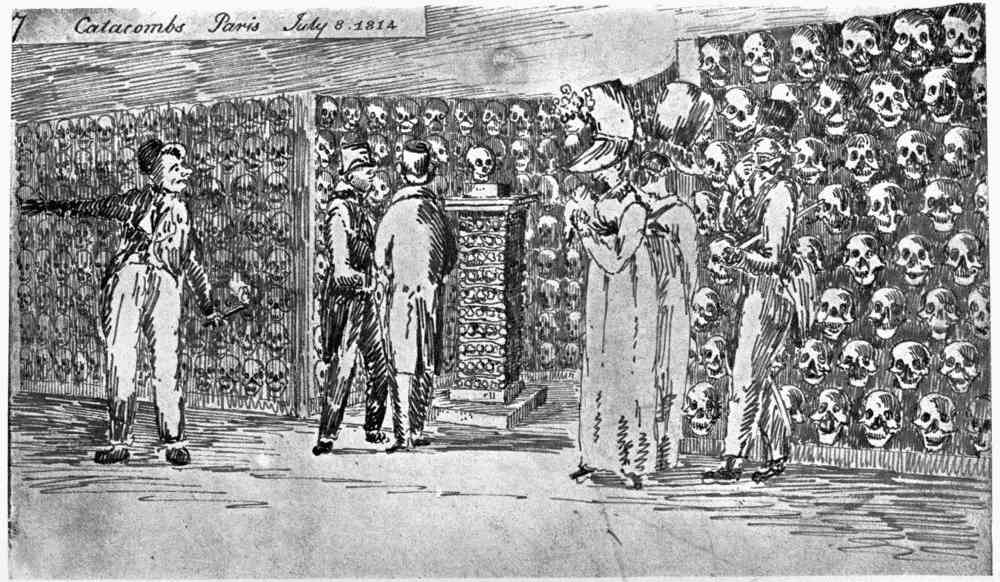 7 Catacombs Paris July 8. 1814